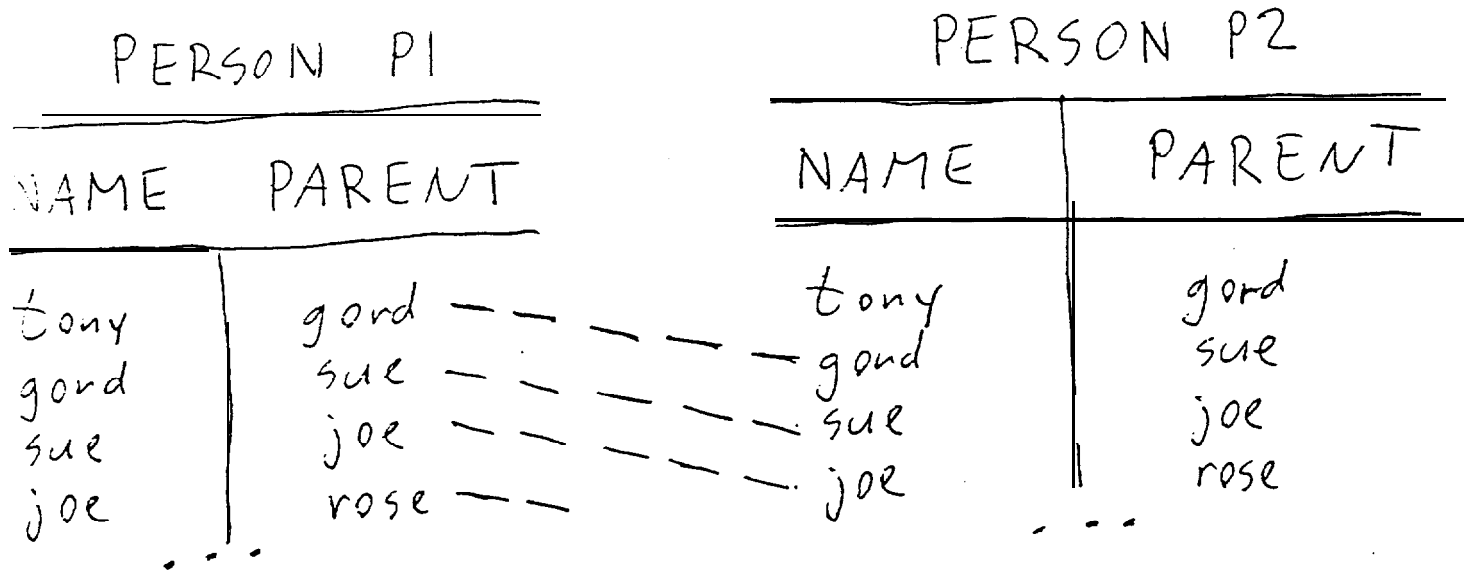 PERSON P1
NAME PARENT
tony gord
gord sue
sue joe
joe rose
...
PERSON P2
NAME PARENT
tony gord
gord sue
sue joe
joe rose
...